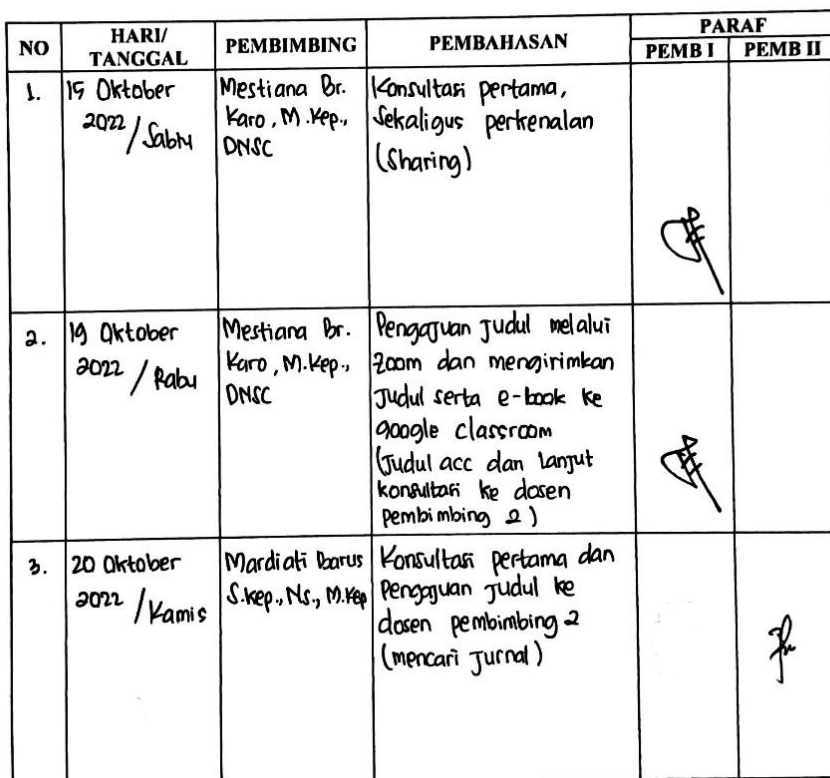 NO
HARI/
TANGGAL
PEMBIMBING
PEMBAHASAN
PARAF
PEMB I
PEMB II
1.
15 Oktober
2022 / Sabtu
Mestiana Br.
Karo, M.Kep.,
DNSC
Konsultasi pertama,
Sekaligus perkenalan
(Sharing)
2.
19 Oktober
2022 / Rabu
Mestiana Br.
Karo, M.Kep.,
DNSC
Pengajuan Judul melalui
Zoom dan mengirimkan
Judul serta e-book ke
google classroom
(Judul acc dan lanjut
konsultasi ke dosen
pembimbing 2)
3.
20 Oktober
2022 / Kamis
Mardiati Barus
S.Kep., Ns., M.Kep
Konsultasi pertama dan
Pengajuan Judul ke
dosen pembimbing 2
(mencari Jurnal)